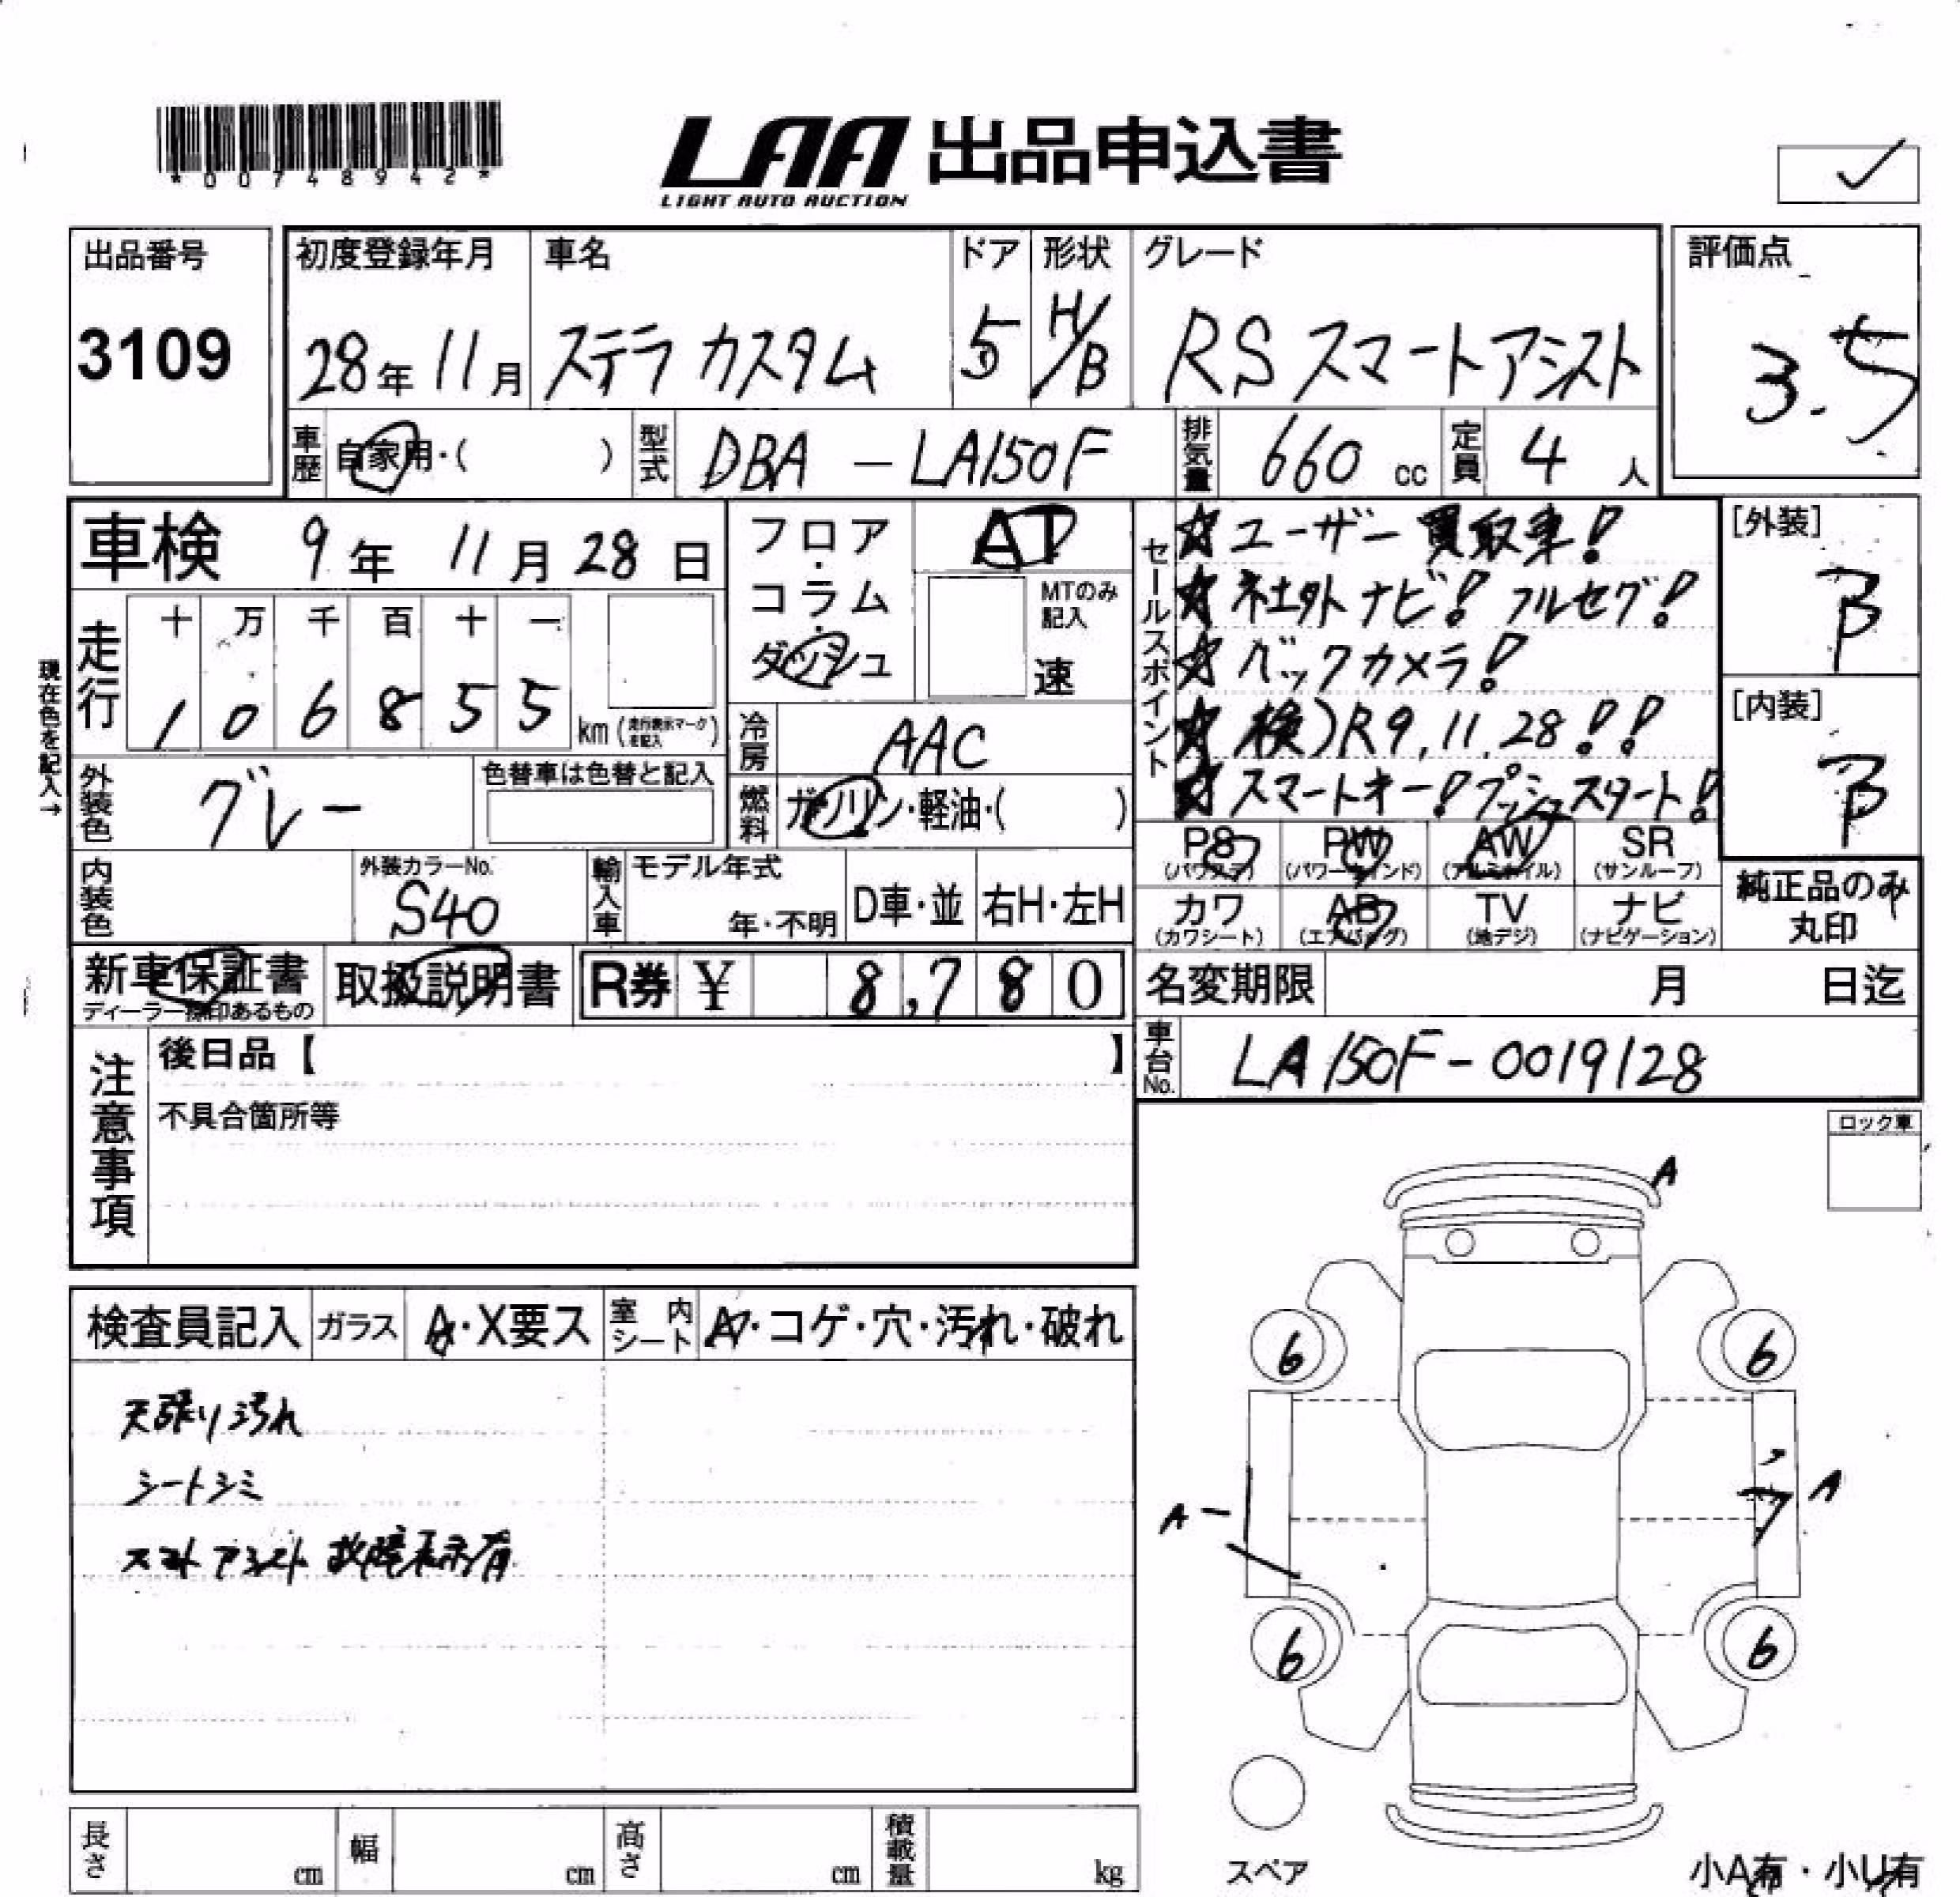 *00748942*
LAA 出品申込書
LIGHT AUTO AUCTION
出品番号
3109
初度登録年月
28年 11月
車名
ステラ カスタム
ドア
5
形状
H/B
グレード
RS スマートアシスト
評価点
3.5
車歴 自家用・( )
型式 DBA - LA150F
排気量 660 cc
定員 4 人
車検 9年 11月 28日
現在色を記入→
走行
十 万 千 百 十 一
1 0 6 8 5 5
km (走行表示マークを記入)
フロア・コラム・ダッシュ
AT
MTのみ記入
速
冷房 AAC
燃料 ガソリン・軽油・( )
セールスポイント
☆ ユーザー買取車!
☆ 社外ナビ! フルセグ!
☆ バックカメラ!
☆ 検)R9.11.28!!
☆ スマートキー! プッシュスタート!
[外装]
B
[内装]
B
外装色 グレー
色替車は色替と記入
内装色
外装カラーNo.
S40
輸入車
モデル年式
年・不明
D車・並
右H・左H
PS (パワステ)
PW (パワーウインド)
AW (アルミホイル)
SR (サンルーフ)
カワ (カワシート)
AB (エアバッグ)
TV (地デジ)
ナビ (ナビゲーション)
純正品のみ
丸印
新車保証書
ディーラー捺印あるもの
取扱説明書
R券 ¥ 8,780
名変期限 月 日迄
車台No. LA150F-0019128
注意事項
後日品【 】
不具合箇所等
ロック車
検査員記入
ガラス A・X要ス
室内シート A・コゲ・穴・汚れ・破れ
天張り汚れ
シートシミ
スマートアシスト 故障表示有
A
6
6
A
A
6
6
スペア
長さ cm
幅 cm
高さ cm
積載量 kg
小A有・小U有